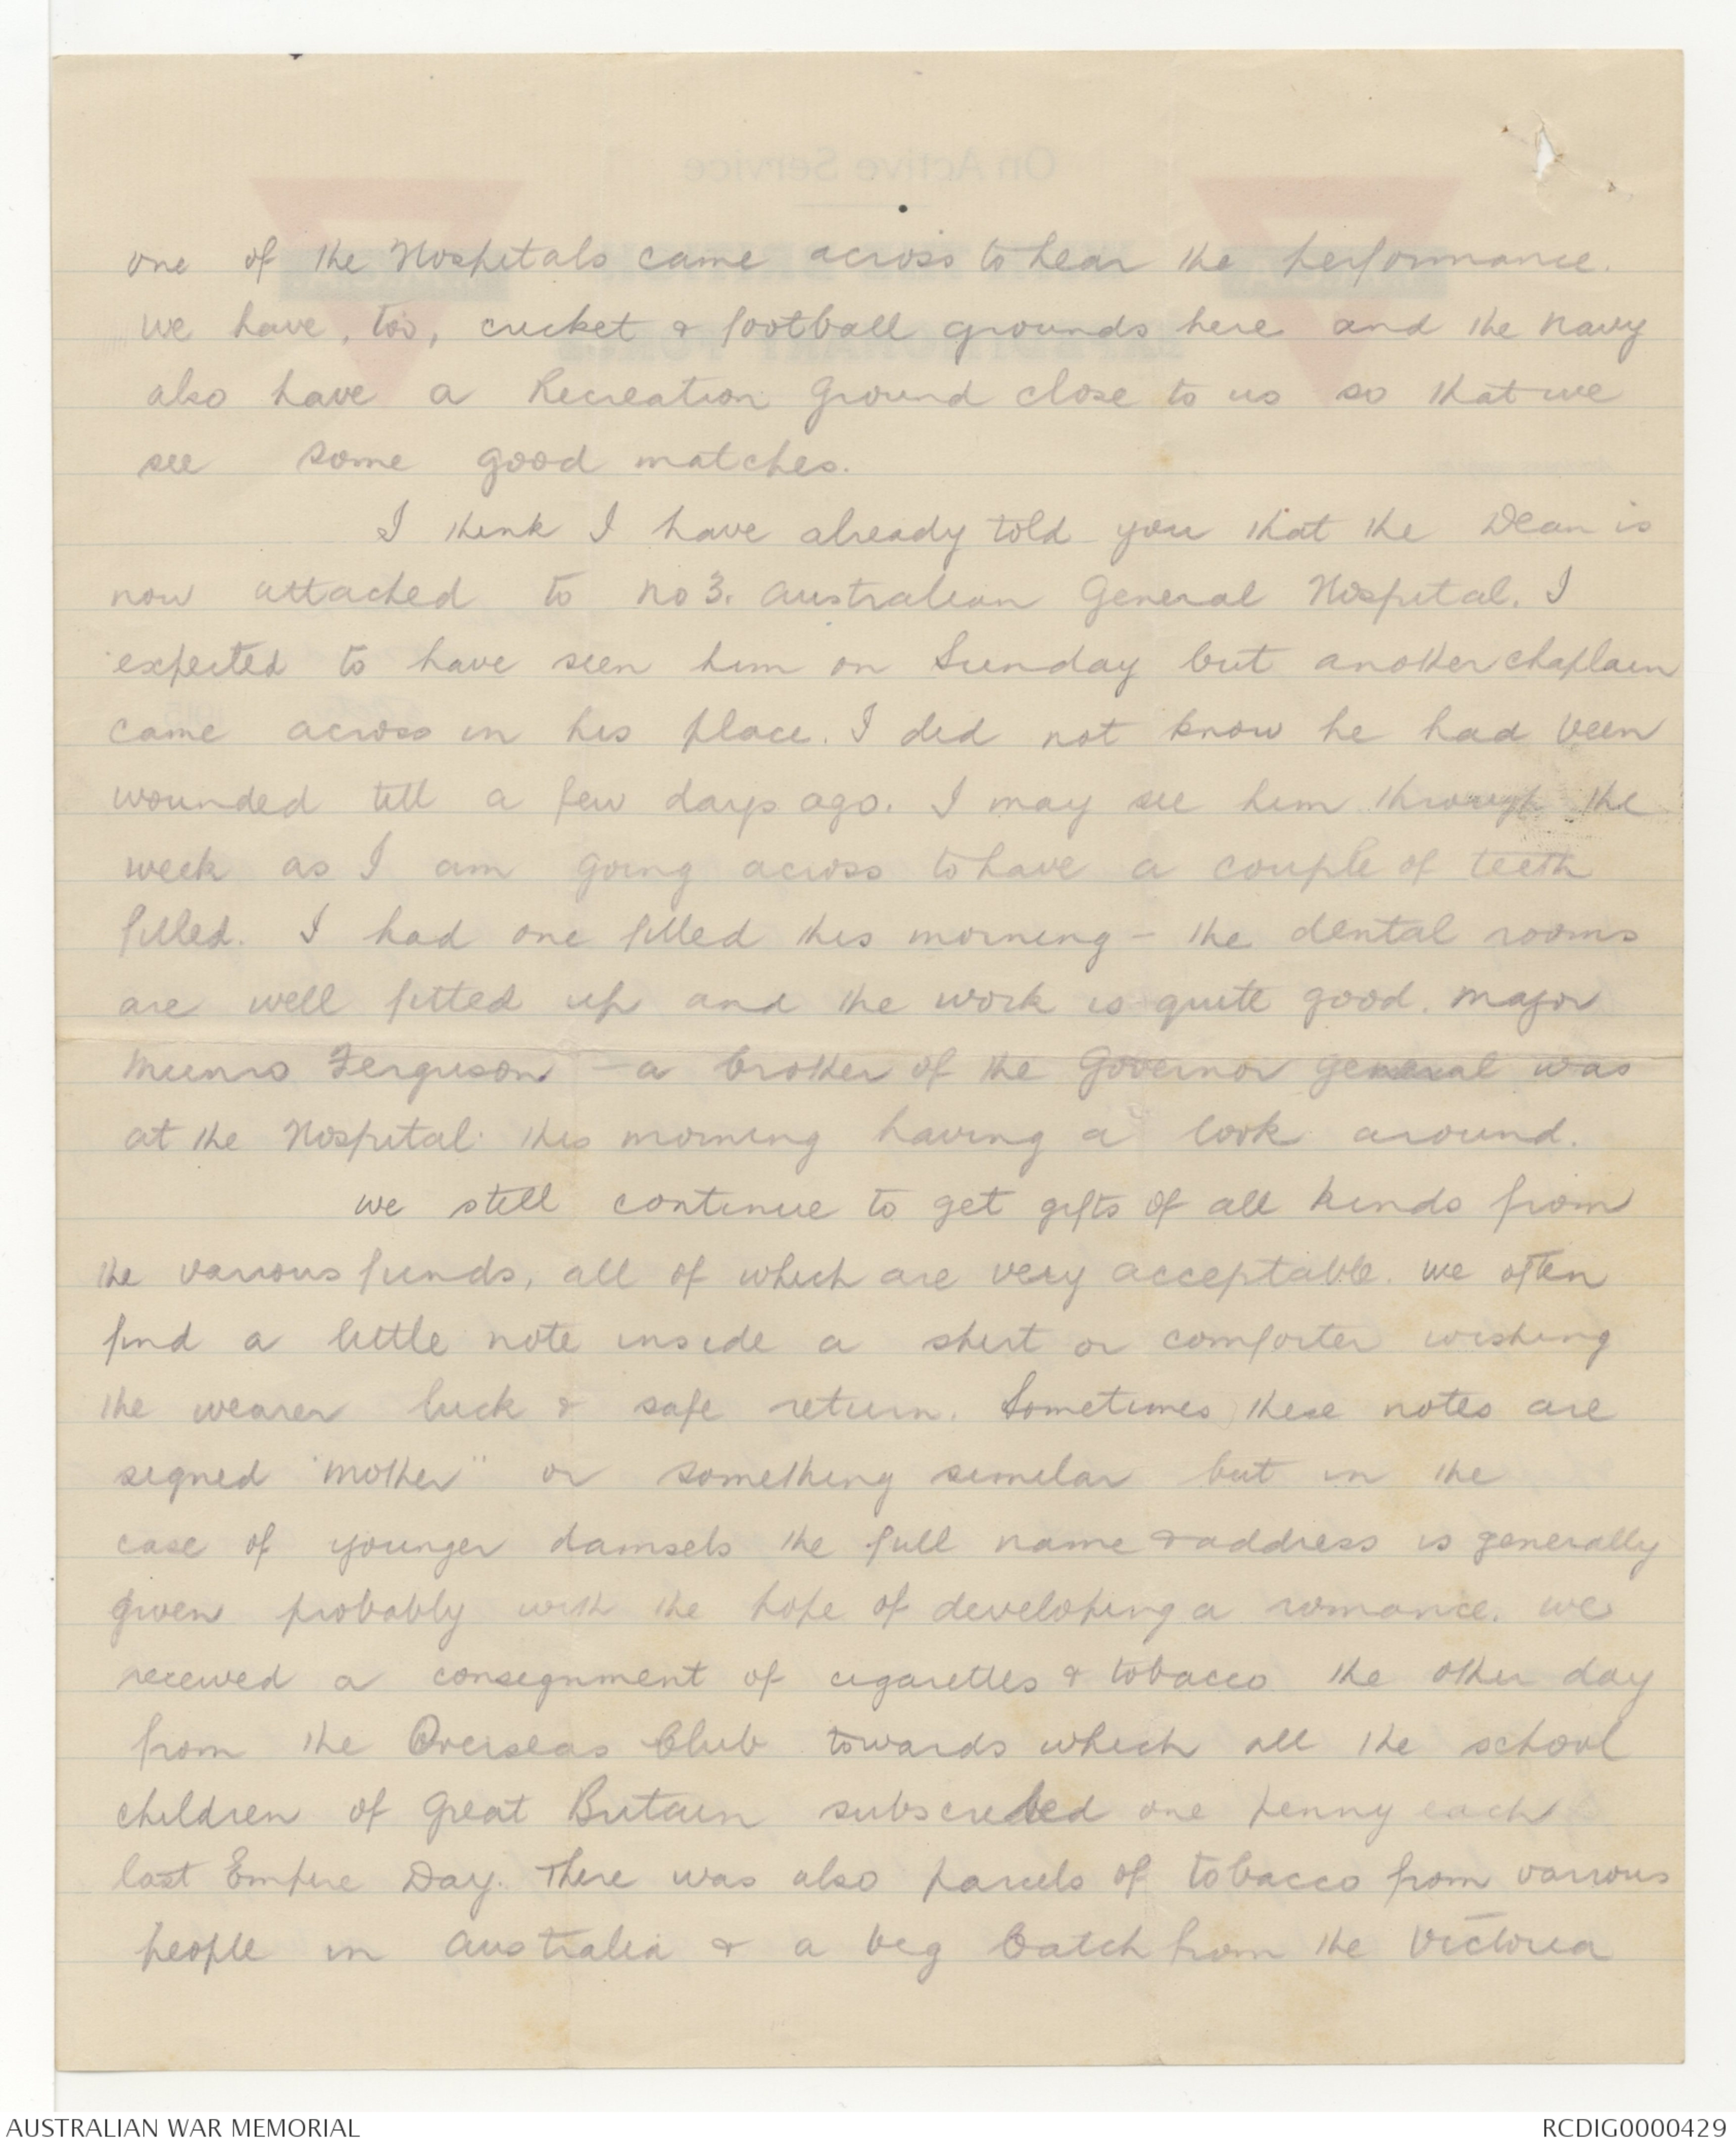 one of the Hospitals came across to hear the performance.
We have, too, cricket & football grounds here and the Navy
also have a Recreation Ground close to us so that we
see some good matches.
I think I have already told you that the Dean is
now attached to No 3. Australian General Hospital. I
expected to have seen him on Sunday but another chaplain
came across in his place. I did not know he had been
wounded till a few days ago. I may see him through the
week as I am going across to have a couple of teeth
filled. I had one filled this morning - the dental rooms
are well fitted up and the work is quite good. Major
Munro Ferguson - a brother of the Governor General was
at the Hospital this morning having a look around.
We still continue to get gifts of all kinds from
the various funds, all of which are very acceptable. We often
find a little note inside a shirt or comforter wishing
the wearer luck & safe return. Sometimes these notes are
signed "Mother" or something similar but in the
case of younger damsels the full name & address is generally
given probably with the hope of developing a romance. We
received a consignment of cigarettes & tobacco the other day
from the Overseas Club towards which all the school
children of Great Britain subscribed one penny each
last Empire Day. There was also parcels of tobacco from various
people in Australia & a big batch from the Victoria
AUSTRALIAN WAR MEMORIAL
RCDIG0000429